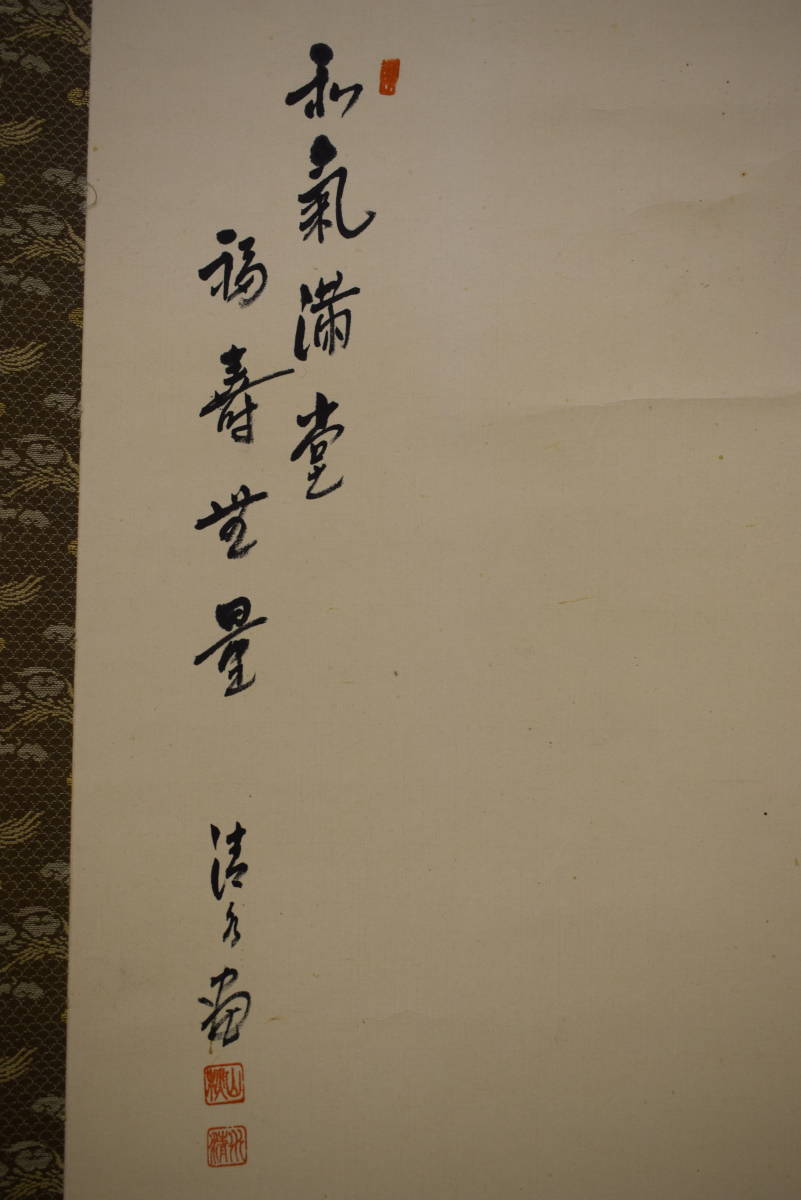 和氣滿堂
福壽無量
清水画